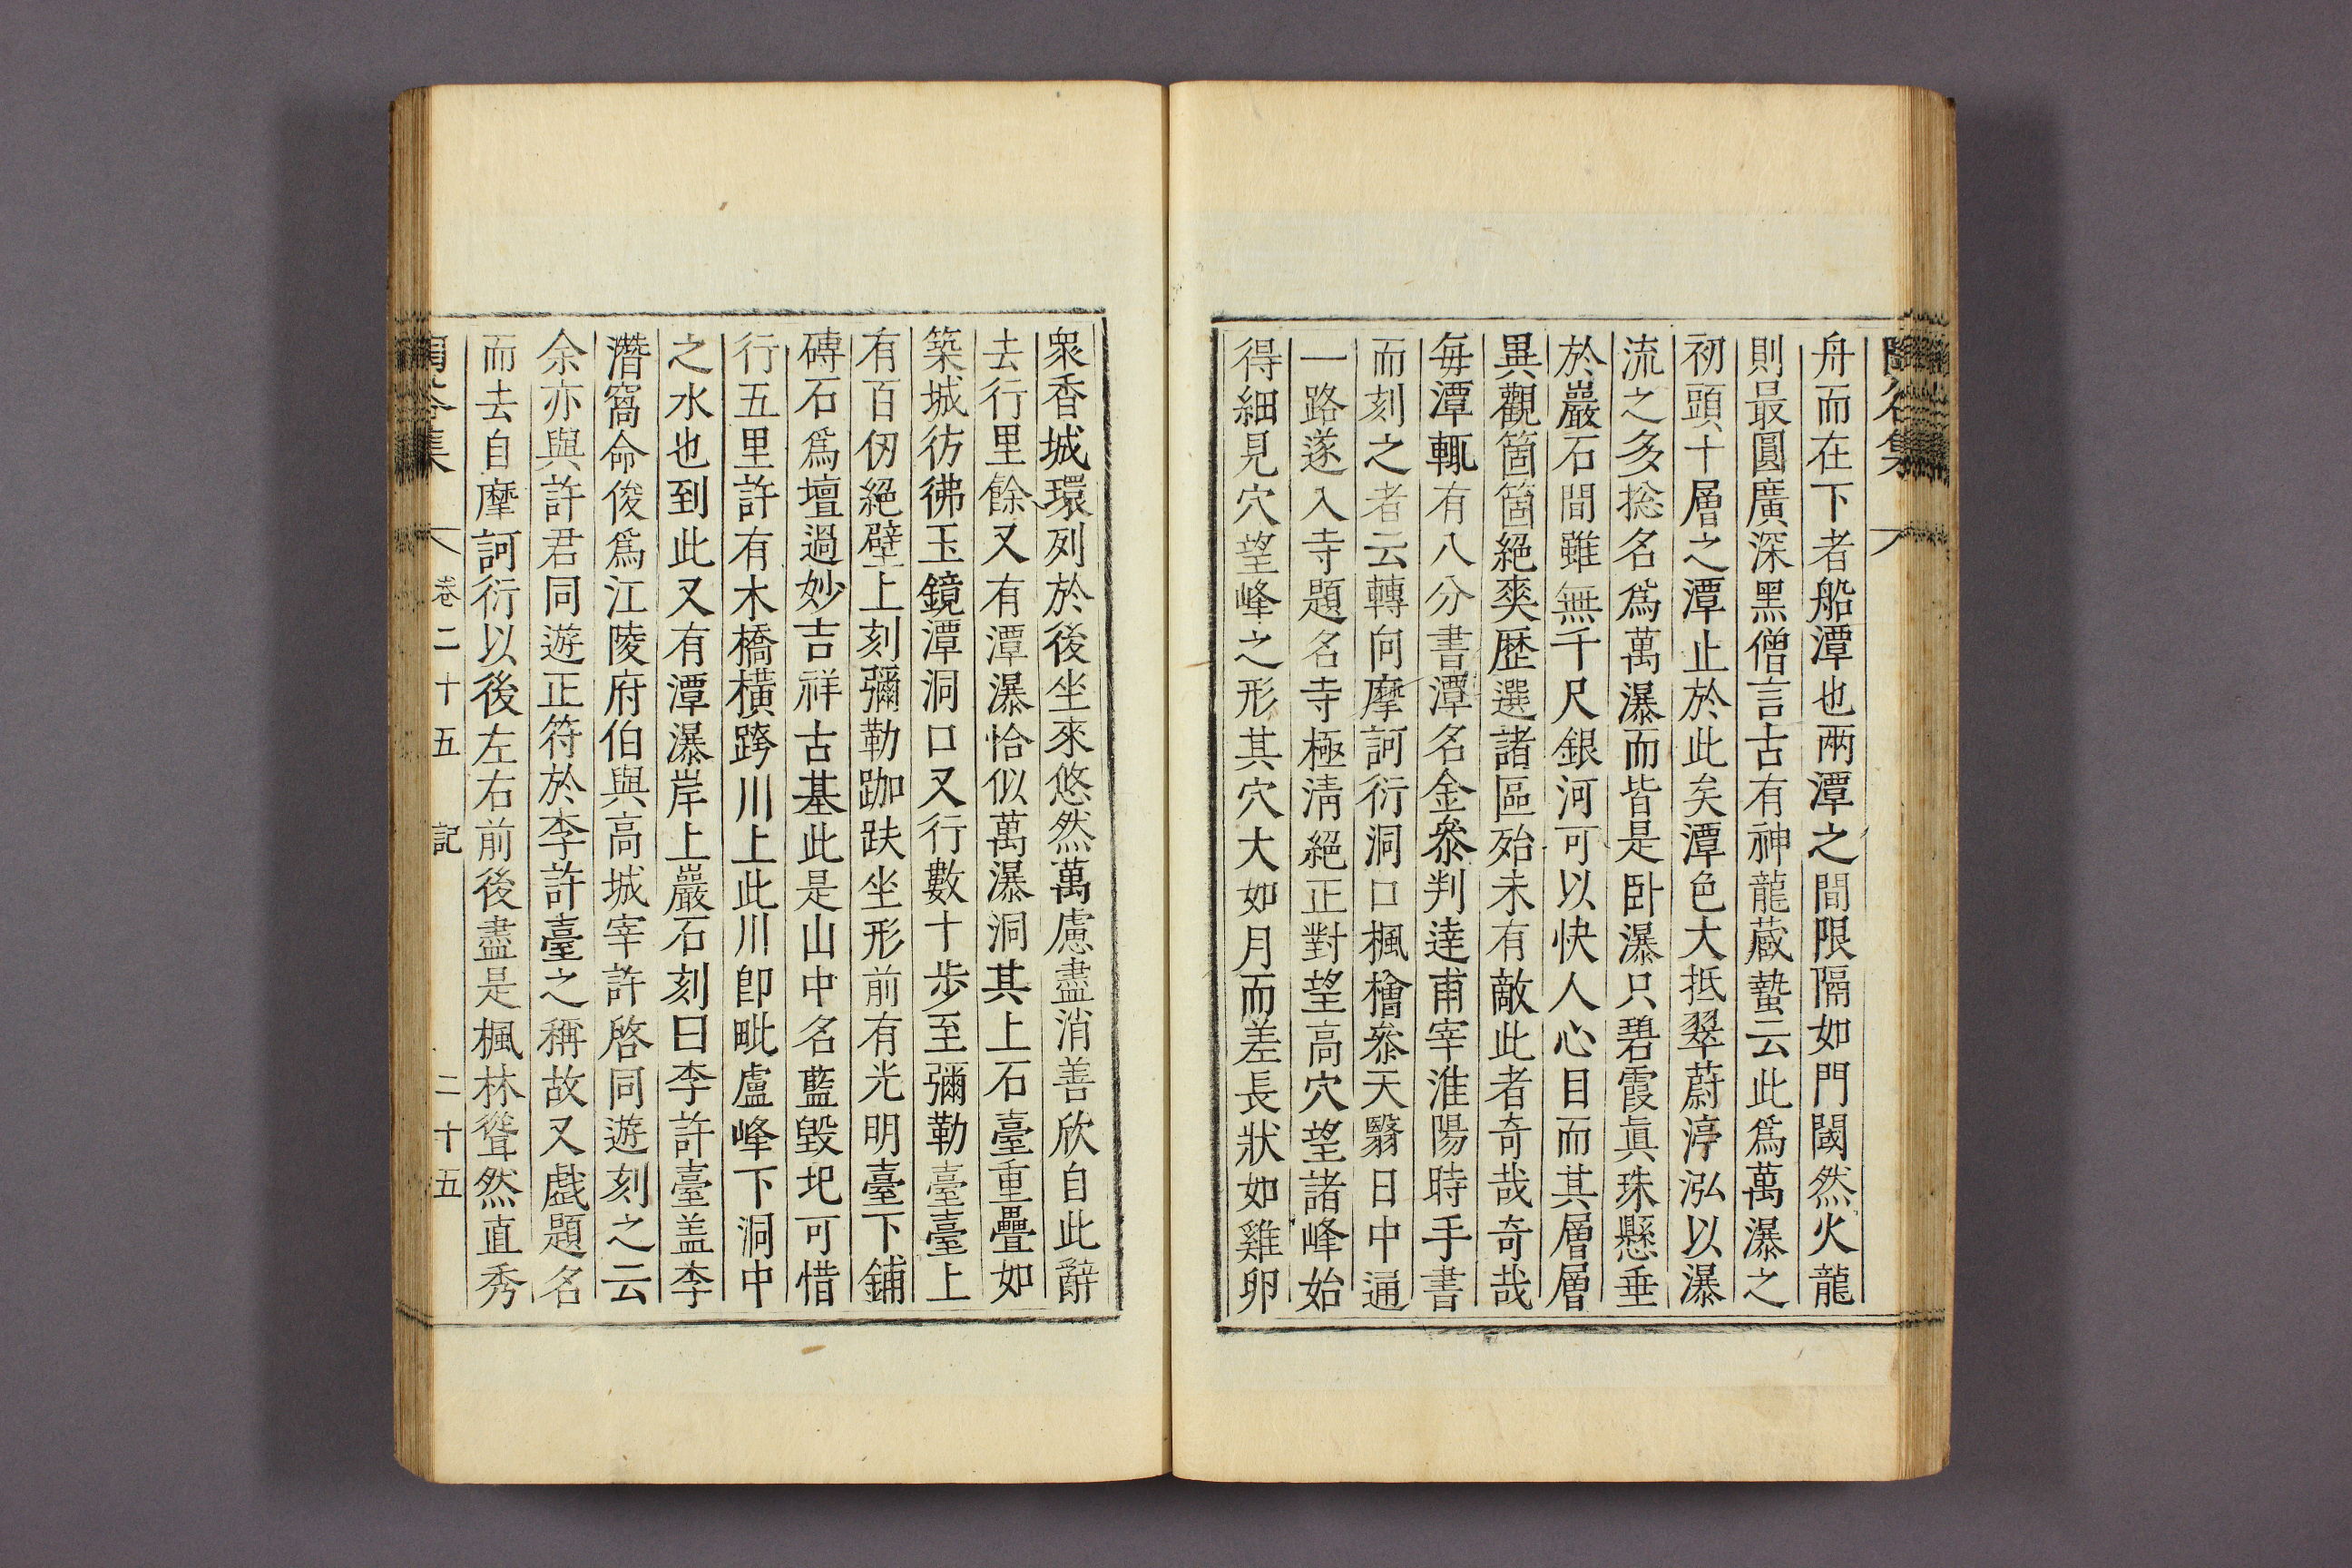 舟而在下者船潭也兩潭之間限隔如門閾然火龍
則最圓廣深黑僧言古有神龍藏蟄云此爲萬瀑之
初頭十層之潭止於此矣潭色大抵翠蔚渟泓以瀑
流之多捴名爲萬瀑而皆是臥瀑只碧霞眞珠懸垂
於巖石間雖無千尺銀河可以快人心目而其層層
異觀箇箇絕奭歷選諸區殆未有敵此者奇哉奇哉
每潭輒有八分書潭名金叅判逵甫宰淮陽時手書
而刻之者云轉向摩訶衍洞口楓檜叅天翳日中通
一路遂入寺題名寺極淸絕正對望高穴望諸峰始
得細見穴望峰之形其穴大如月而差長狀如雞卵
衆香城環列於後坐來悠然萬慮盡消善欣自此辭
去行里餘又有潭瀑恰似萬瀑洞其上石臺重疊如
築城彷彿玉鏡潭洞口又行數十步至彌勒臺臺上
有百仞絕壁上刻彌勒跏趺坐形前有光明臺下鋪
磚石爲壇過妙吉祥古基此是山中名藍毀圯可惜
行五里許有木橋橫跨川上此川卽毗盧峰下洞中
之水也到此又有潭瀑岸上巖石刻曰李許臺盖李
潛窩命俊爲江陵府伯與高城宰許啓同遊刻之云
余亦與許君同遊正符於李許臺之稱故又戱題名
而去自摩訶衍以後左右前後盡是楓林聳然直秀
集 卷二十五 記 二十五